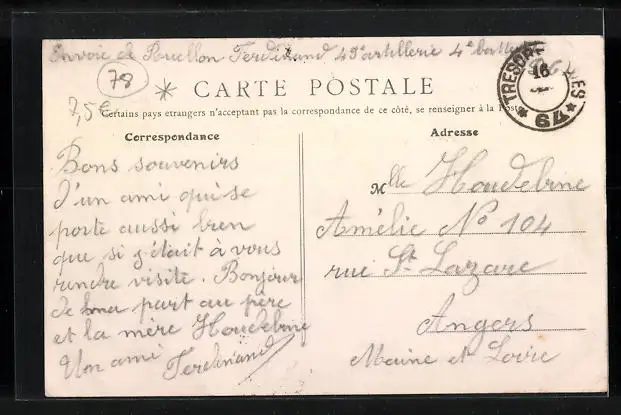 Envoie de Rouillon Ferdinand 49e artillerie 4e batterie
78
CARTE POSTALE
7,5€
Certains pays etrangers n'acceptant pas la correspondance de ce côté, se renseigner à la Poste
TRESOR POSTES
16
* 64 *
Correspondance
Bons souvenirs
D'un ami qui se
porte aussi bien
que si j'était à vous
rendre visite. Bonjour
de ma part au père
et la mère Houdebine
Un ami
Ferdinand
Adresse
Mlle Houdebine
Amélie No 104
rue St Lazare
Angers
Maine et Loire